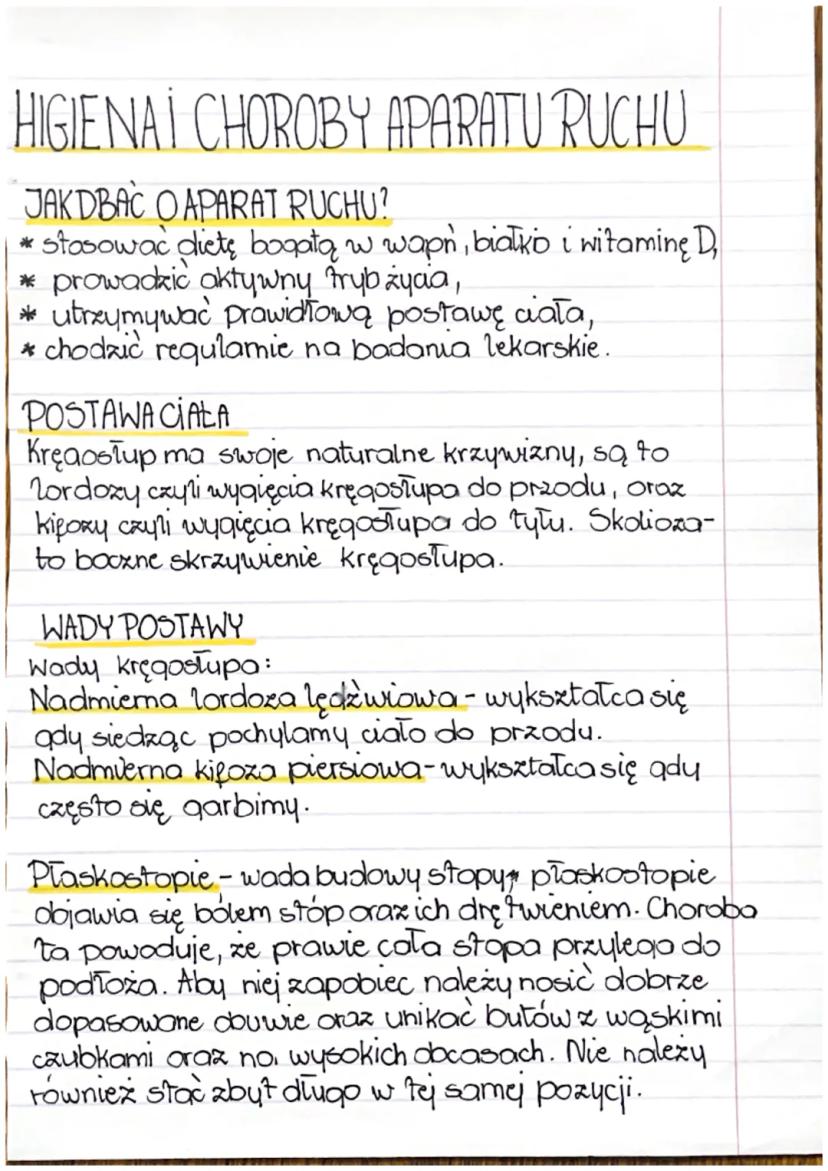 HIGIENA I CHOROBY APARATU RUCHU
JAK DBAĆ O APARAT RUCHU?
* stosować dietę bogatą w wapń, białko i witaminę D,
* prowadzić aktywny tryb życia,
* utrzymywać prawidłową postawę ciała,
* chodzić regularnie na badania lekarskie.
POSTAWA CIAŁA
Kręgosłup ma swoje naturalne krzywizny, są to
lordozy czyli wygięcia kręgosłupa do przodu, oraz
kifozy czyli wygięcia kręgosłupa do tyłu. Skolioza-
to boczne skrzywienie kręgosłupa.
WADY POSTAWY
Wady kręgosłupa:
Nadmierna lordoza lędźwiowa - wykształca się
gdy siedząc pochylamy ciało do przodu.
Nadmierna kifoza piersiowa - wykształca się gdy
często się garbimy.
Płaskostopie - wada budowy stopy, płaskostopie
objawia się bólem stóp oraz ich drętwieniem. Choroba
ta powoduje, że prawie cała stopa przylega do
podłoża. Aby niej zapobiec należy nosić dobrze
dopasowane obuwie oraz unikać butów z wąskimi
czubkami oraz na wysokich obcasach. Nie należy
również stać zbyt długo w tej samej pozycji.